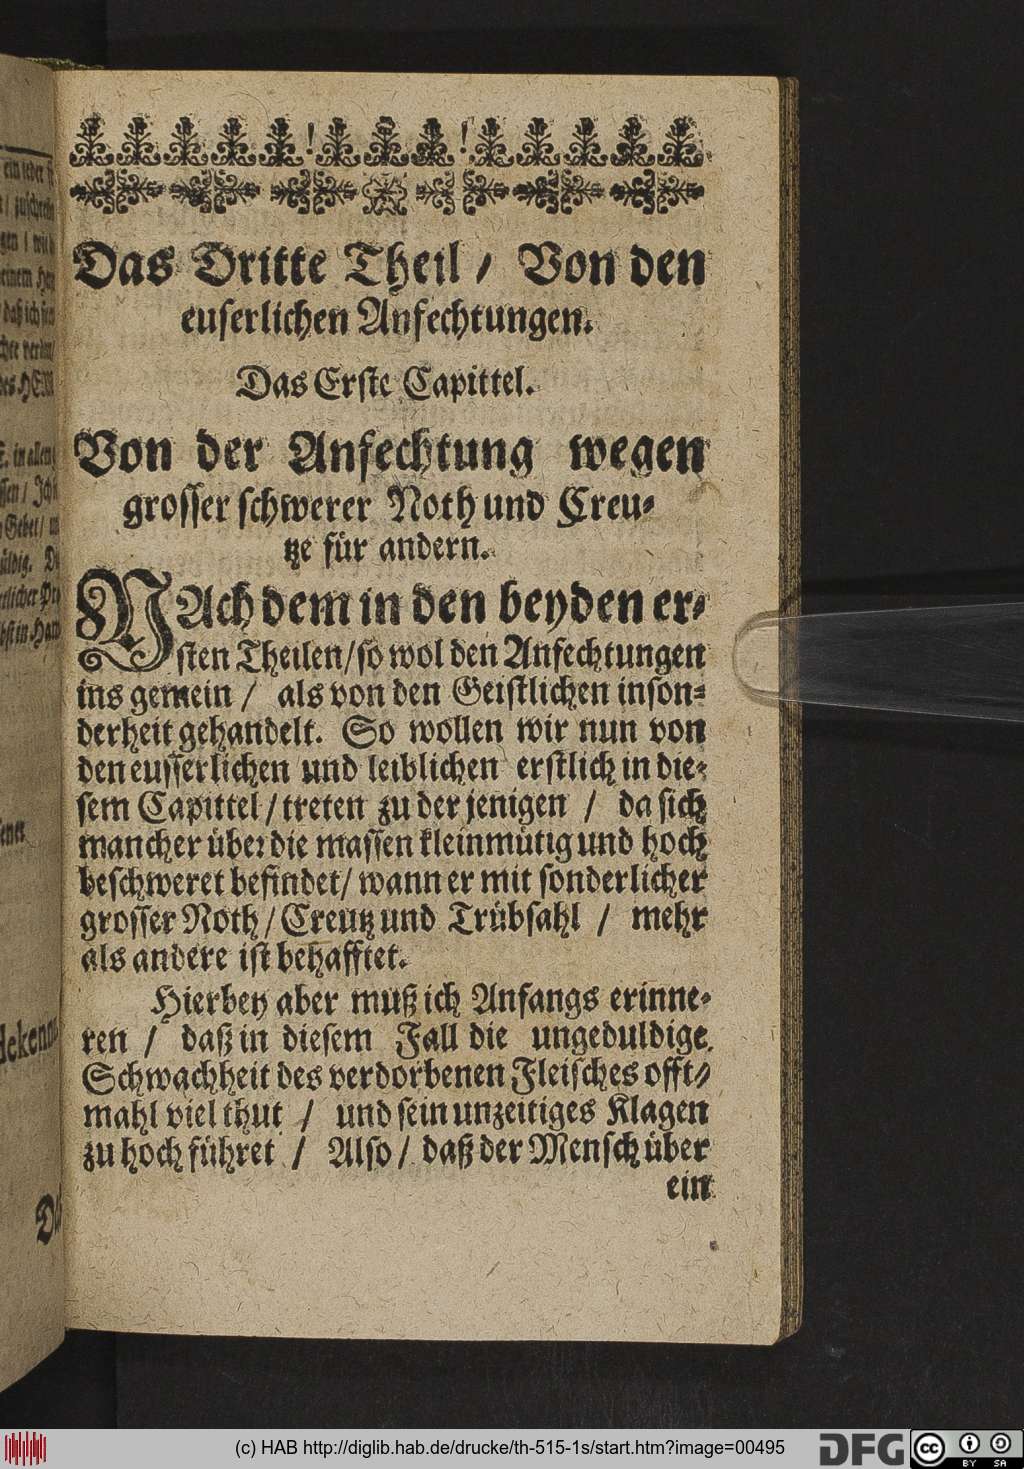 Das Dritte Theil / Von den
euserlichen Anfechtungen.
Das Erste Capittel.
Von der Anfechtung wegen
grosser schwerer Noth und Creu-
tze für andern.
NAch dem in den beyden er-
sten Theilen / so wol den Anfechtungen
ins gemein / als von den Geistlichen inson-
derheit gehandelt. So wollen wir nun von
den eusserlichen und leiblichen erstlich in die-
sem Capittel / treten zu der jenigen / da sich
mancher über die massen kleinmütig und hoch
beschweret befindet / wann er mit sonderlicher
grosser Noth / Creutz und Trübsahl / mehr
als andere ist behafftet.
Hierbey aber muß ich Anfangs erinne-
ren / daß in diesem Fall die ungeduldige
Schwachheit des verdorbenen Fleisches offt-
mahl viel thut / und sein unzeitiges Klagen
zu hoch führet / Also / daß der Mensch über
ein
(c) HAB http://diglib.hab.de/drucke/th-515-1s/start.htm?image=00495
DFG
cc BY SA